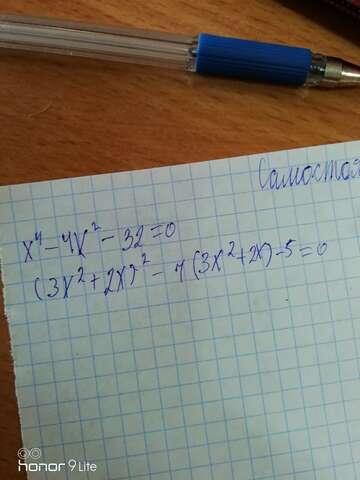 Самостоя
x⁴-4x²-32=0
(3x²+2x)²-4(3x²+2x)-5=0
honor 9 Lite